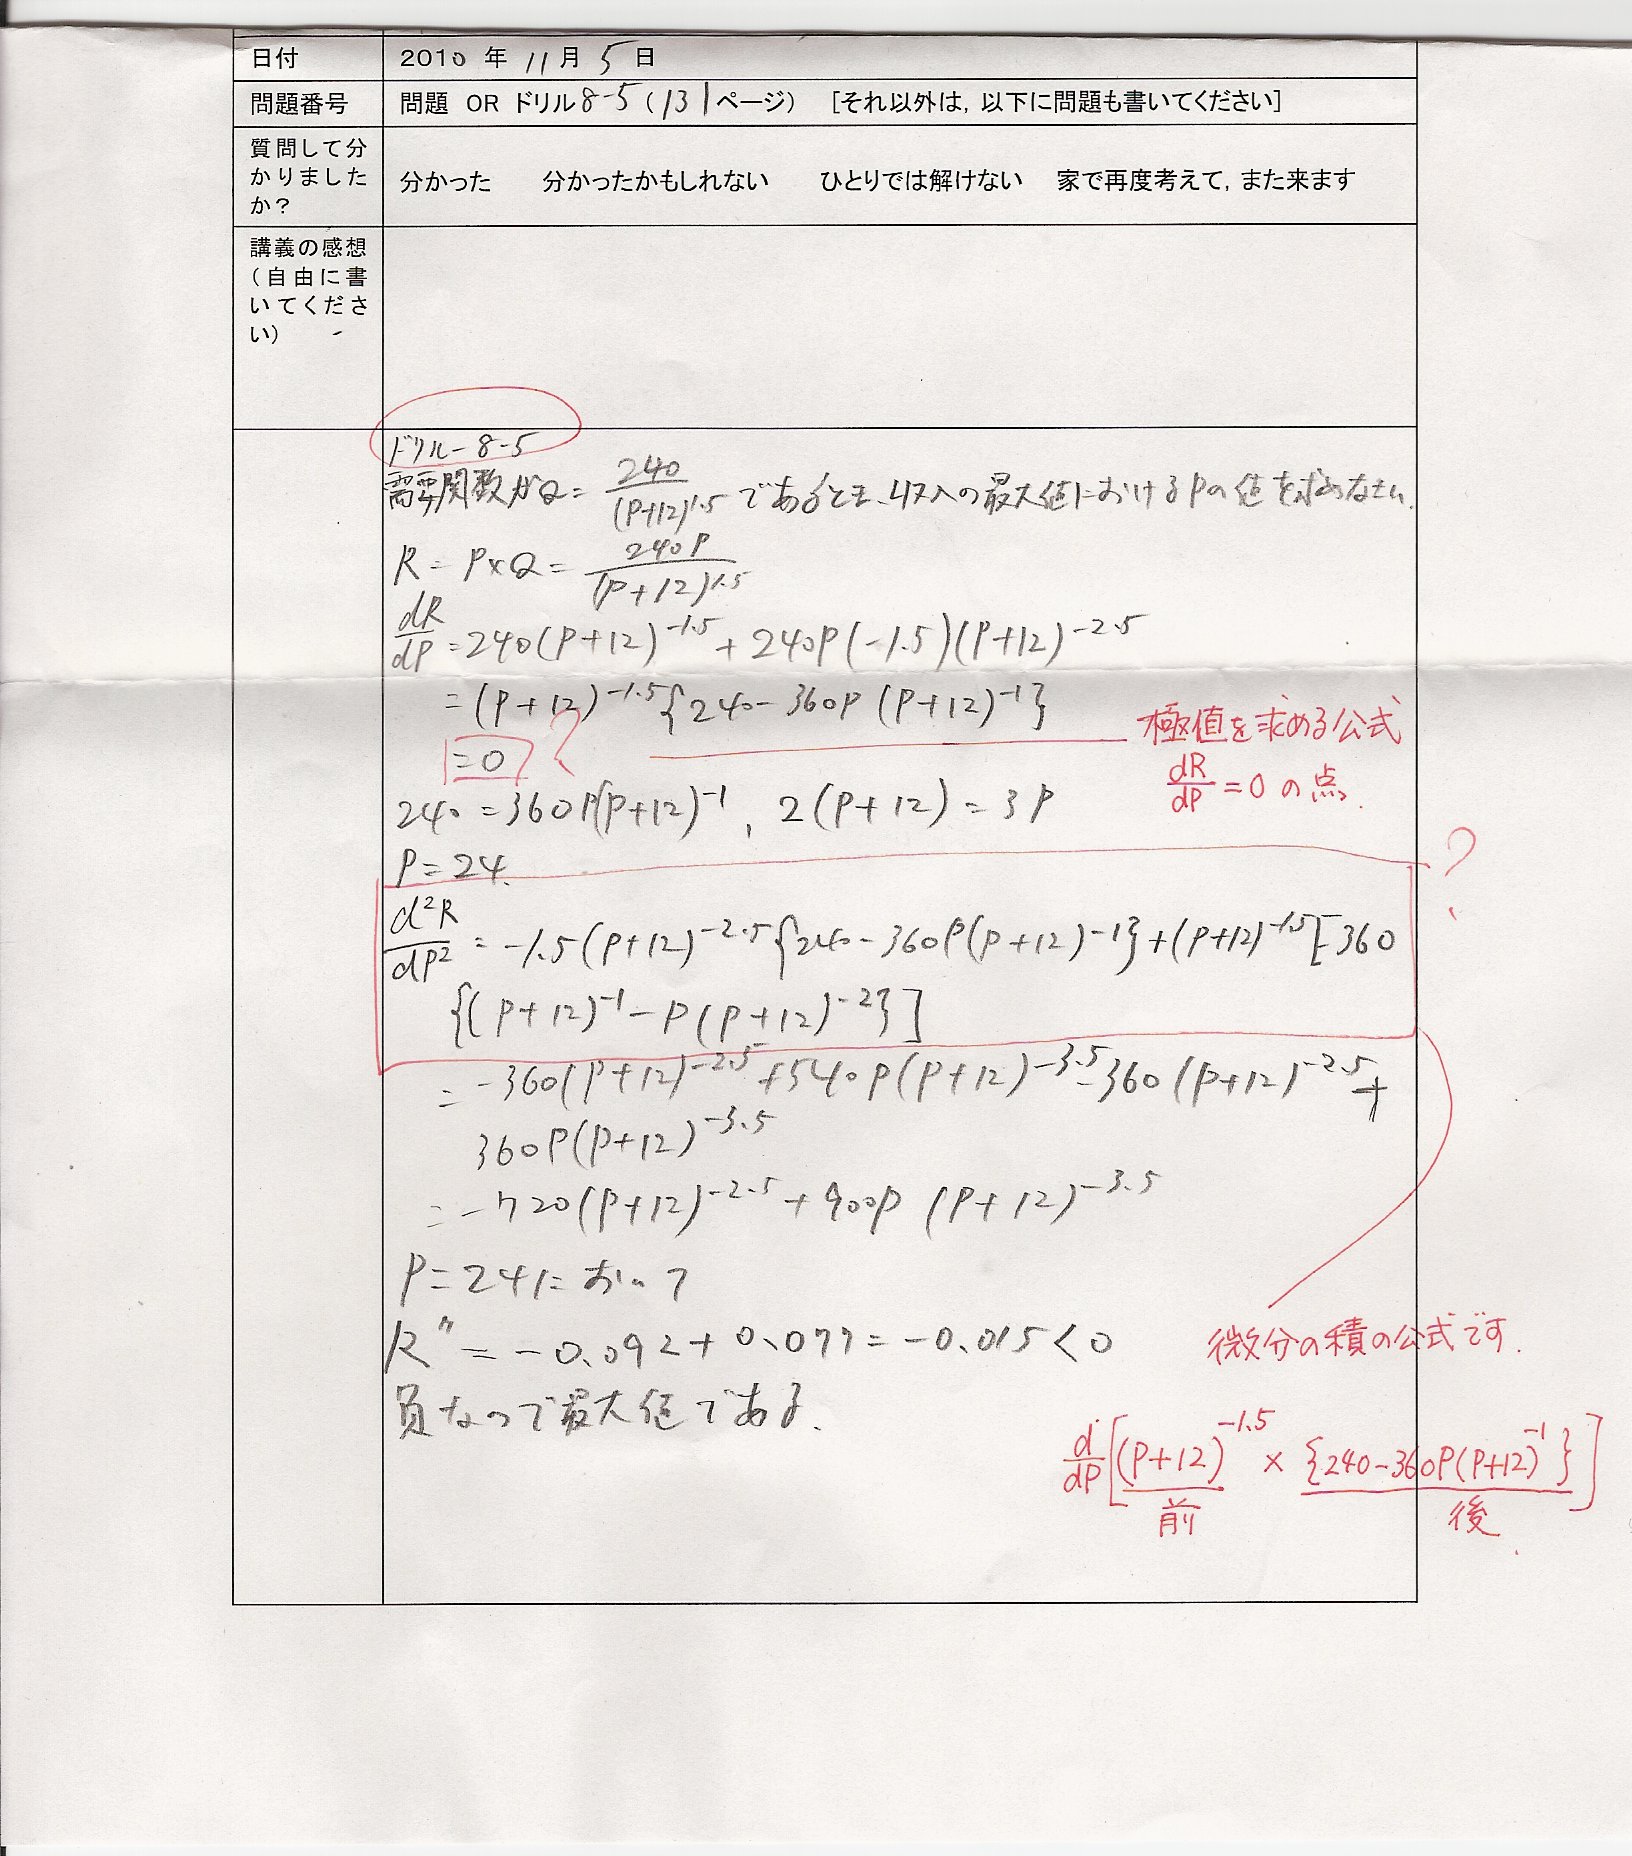 日付 2010 年 11 月 5 日
問題番号 問題 OR ドリル 8-5 (131ページ) [それ以外は, 以下に問題も書いてください]
質問して分
かりました
か?
分かった 分かったかもしれない ひとりでは解けない 家で再度考えて, また来ます
講義の感想
(自由に書
いてくださ
い)
ドリル-8-5
需要関数がQ= 240/(P+12)^1.5 であるとき、収入の最大値におけるPの値を求めなさい.
R = P×Q = 240P/(P+12)^1.5
dR/dP = 240(P+12)^-1.5 + 240P(-1.5)(P+12)^-2.5
= (P+12)^-1.5{240-360P(P+12)^-1}
=0 ?
極値を求める公式
dR/dP = 0 の点.
240 = 360P(P+12)^-1, 2(P+12) = 3P
P=24.
?
d²R/dP² = -1.5(P+12)^-2.5{240-360P(P+12)^-1}+(P+12)^-1.5[-360
{(P+12)^-1-P(P+12)^-2}]
= -360(P+12)^-2.5+540P(P+12)^-3.5-360(P+12)^-2.5+
360P(P+12)^-3.5
= -720(P+12)^-2.5+900P(P+12)^-3.5
P=24において
R″ = -0.092+0.077=-0.015<0
負なので最大値である.
微分の積の公式です.
d/dP[(P+12)^-1.5 × {240-360P(P+12)^-1}]
前 後